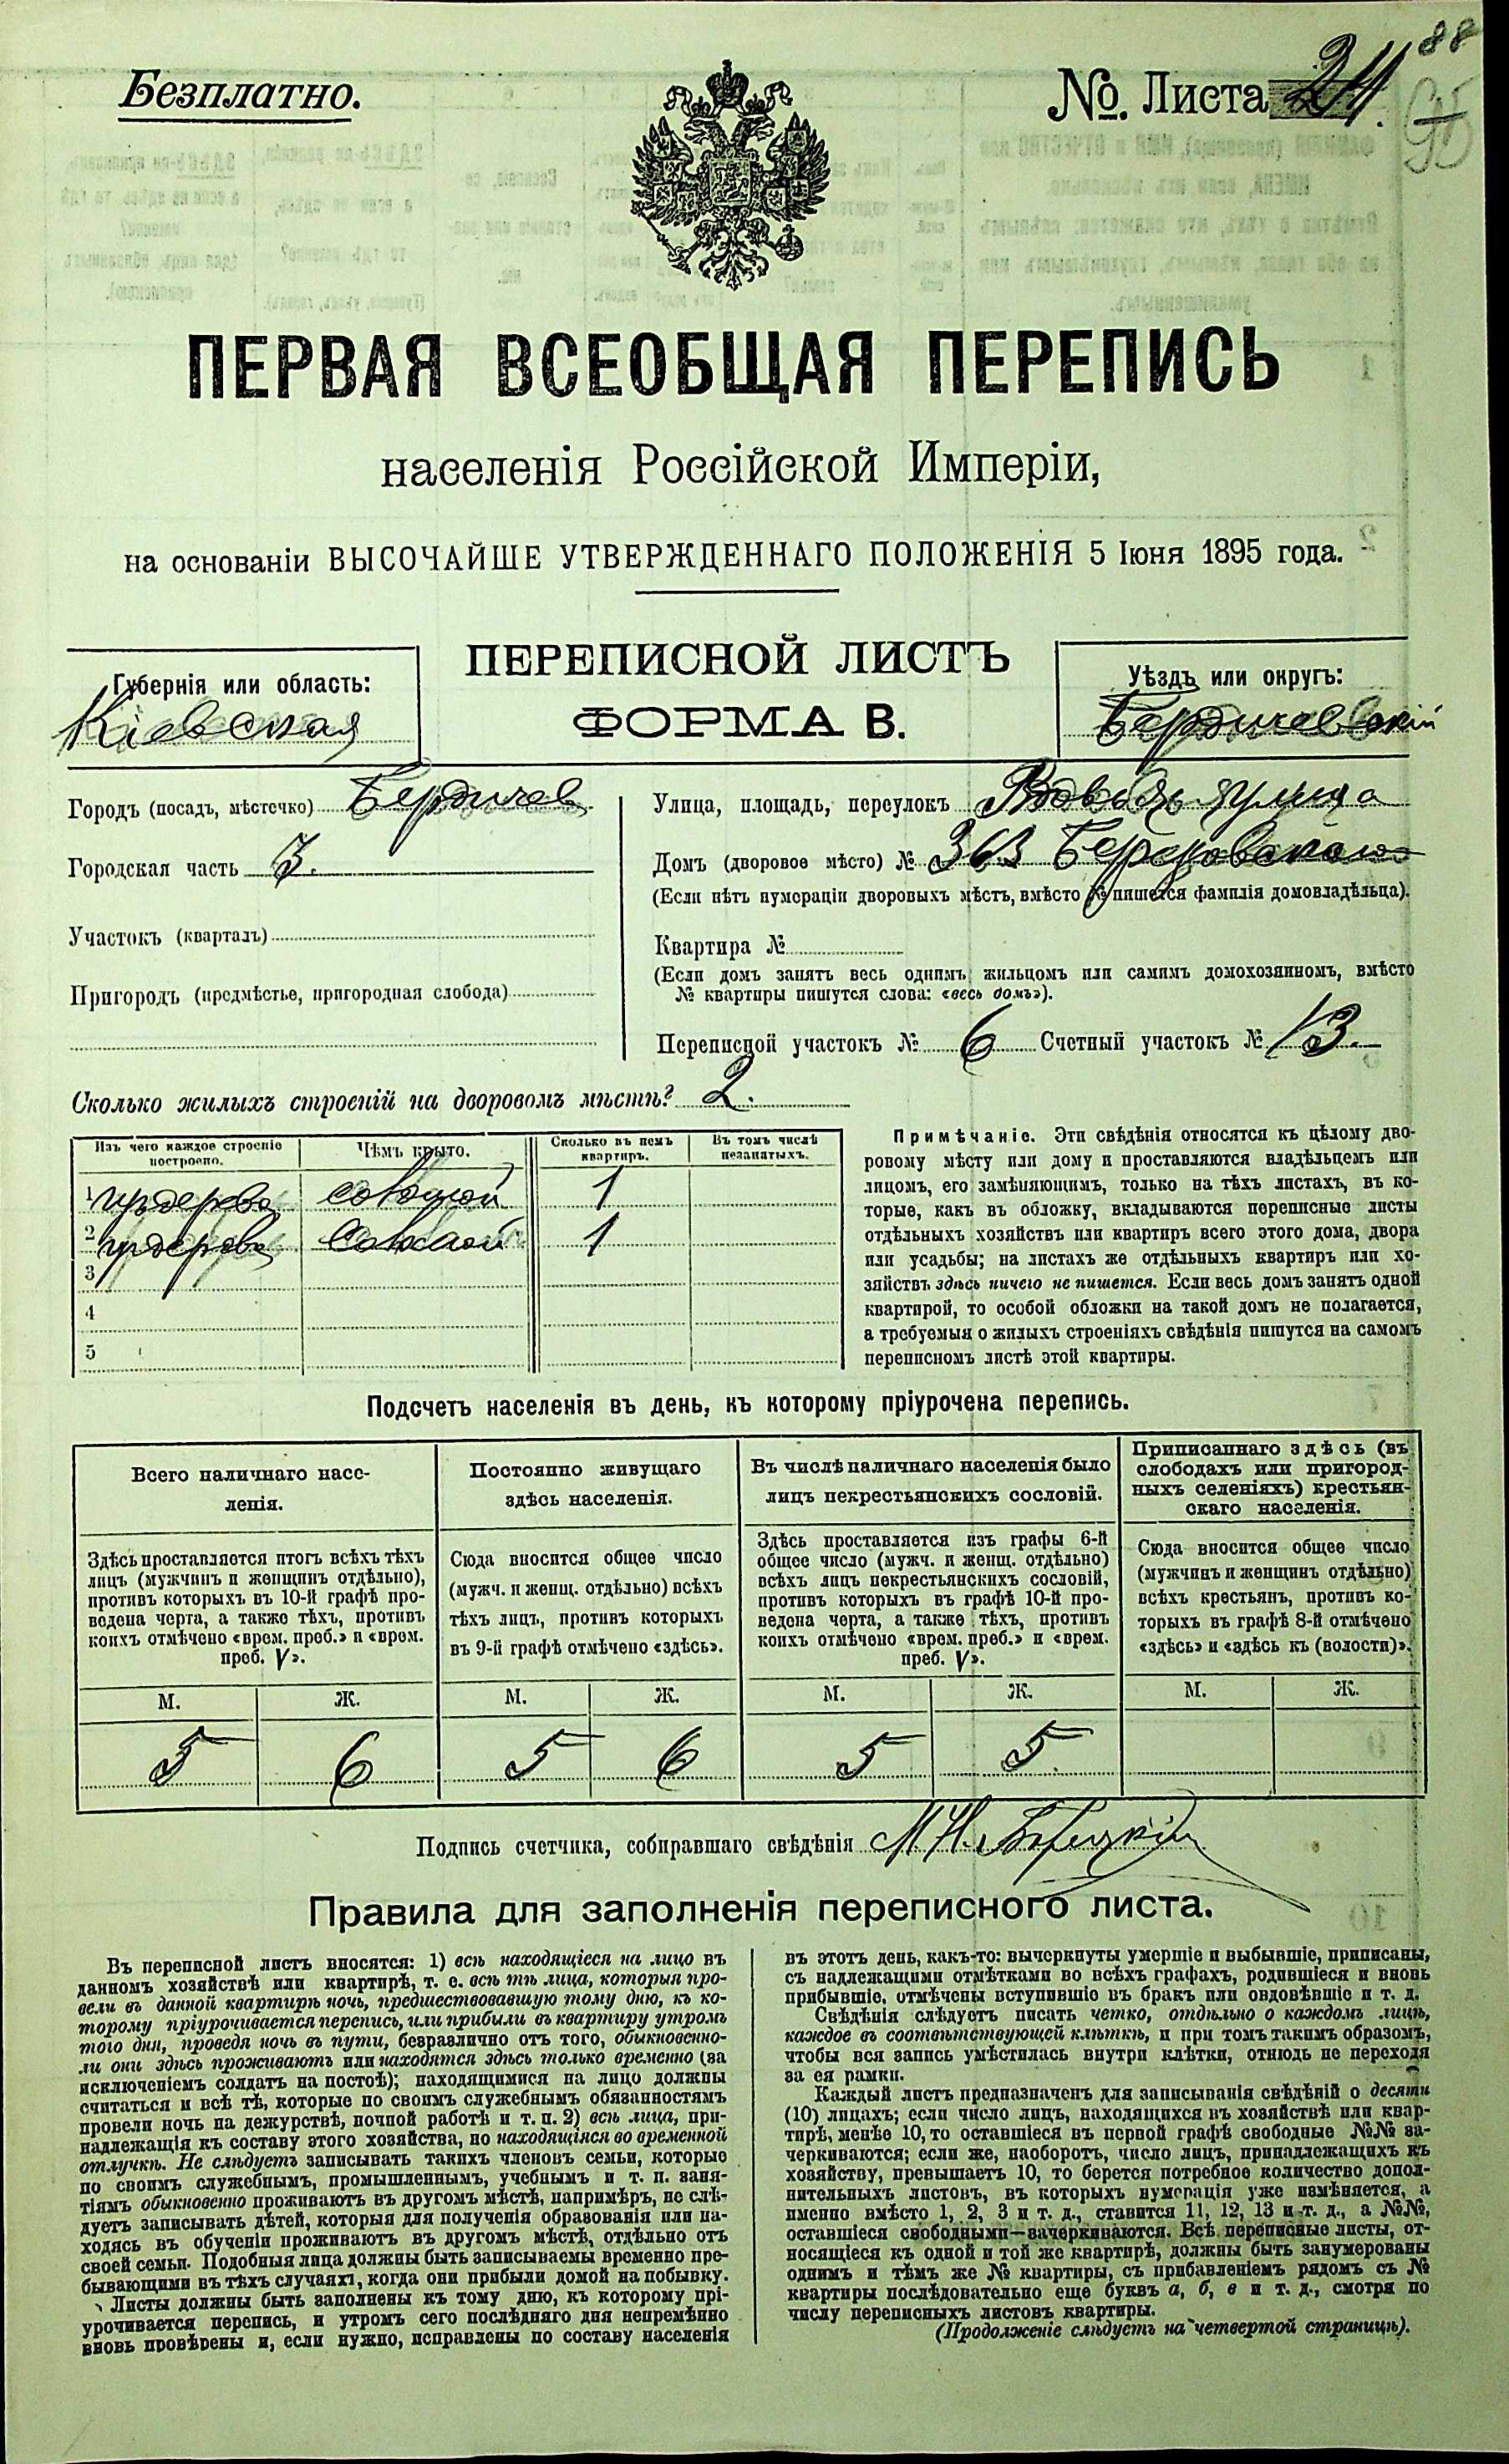 88
Безплатно.
№. Листа 24.
ПЕРВАЯ ВСЕОБЩАЯ ПЕРЕПИСЬ
населенія Россійской Имперіи,
на основаніи ВЫСОЧАЙШЕ УТВЕРЖДЕННАГО ПОЛОЖЕНІЯ 5 Іюня 1895 года.
ПЕРЕПИСНОЙ ЛИСТЪ
ФОРМА В.
Губернія или область:
Кіевская
Уѣздъ или округъ:
Бердичевскій
Городъ (посадъ, мѣстечко) Бердичев
Городская часть 3.
Участокъ (кварталъ)
Пригородъ (предмѣстье, пригородная слобода)
Улица, площадь, переулокъ улица
Домъ (дворовое мѣсто) №
(Если нѣтъ нумораціи дворовыхъ мѣстъ, вмѣсто № пишется фамилія домовладѣльца).
Квартира №
(Если домъ занятъ весь однимъ жильцомъ или самимъ домохозяиномъ, вмѣсто
№ квартиры пишутся слова: «весь домъ»).
Переписной участокъ № 6 Счетный участокъ № 13.
Сколько жилыхъ строеній на дворовомъ мѣстѣ? 2.
Изъ чего каждое строеніе построено. Чѣмъ крыто. Сколько въ немъ квартиръ. Въ томъ числѣ незанятыхъ.
1 1
2 1
3
4
5
Примѣчаніе. Эти свѣдѣнія относятся къ цѣлому дво-
ровому мѣсту или дому и проставляются владѣльцемъ или
лицомъ, его замѣняющимъ, только на тѣхъ листахъ, въ ко-
торые, какъ въ обложку, вкладываются переписные листы
отдѣльныхъ хозяйствъ или квартиръ всего этого дома, двора
или усадьбы; на листахъ же отдѣльныхъ квартиръ или хо-
зяйствъ здѣсь ничего не пишется. Если весь домъ занятъ одной
квартирой, то особой обложки на такой домъ не полагается,
а требуемыя о жилыхъ строеніяхъ свѣдѣнія пишутся на самомъ
переписномъ листѣ этой квартиры.
Подсчетъ населенія въ день, къ которому пріурочена перепись.
Всего наличнаго насе-
ленія.
Здѣсь проставляется итогъ всѣхъ тѣхъ
лицъ (мужчинъ и женщинъ отдѣльно),
противъ которыхъ въ 10-й графѣ про-
ведена черта, а также тѣхъ, противъ
коихъ отмѣчено «врем. преб.» и «врем.
преб. V».
М. Ж.
5 6
Постоянно живущаго
здѣсь населенія.
Сюда вносится общее число
(мужч. и женщ. отдѣльно) всѣхъ
тѣхъ лицъ, противъ которыхъ
въ 9-й графѣ отмѣчено «здѣсь».
М. Ж.
5 6
Въ числѣ наличнаго населенія было
лицъ некрестьянскихъ сословій.
Здѣсь проставляется изъ графы 6-й
общее число (мужч. и женщ. отдѣльно)
всѣхъ лицъ некрестьянскихъ сословій,
противъ которыхъ въ графѣ 10-й про-
ведена черта, а также тѣхъ, противъ
коихъ отмѣчено «врем. преб.» и «врем.
преб. V».
М. Ж.
5 5
Приписаннаго здѣсь (въ
слободахъ или пригород-
ныхъ селеніяхъ) крестьян-
скаго населенія.
Сюда вносится общее число
(мужчинъ и женщинъ отдѣльно)
всѣхъ крестьянъ, противъ ко-
торыхъ въ графѣ 8-й отмѣчено
«здѣсь» и «здѣсь къ (волости)».
М. Ж.
Подпись счетчика, собиравшаго свѣдѣнія
Правила для заполненія переписного листа.
Въ переписной листъ вносятся: 1) всѣ находящіеся на лицо въ
данномъ хозяйствѣ или квартирѣ, т. е. всѣ тѣ лица, которыя про-
вели въ данной квартирѣ ночь, предшествовавшую тому дню, къ ко-
торому пріурочивается перепись, или прибыли въ квартиру утромъ
того дня, проведя ночь въ пути, безразлично отъ того, обыкновенно-
ли они здѣсь проживаютъ или находятся здѣсь только временно (за
исключеніемъ солдатъ на постоѣ); находящимися на лицо должны
считаться и всѣ тѣ, которые по своимъ служебнымъ обязанностямъ
провели ночь на дежурствѣ, ночной работѣ и т. п. 2) всѣ лица, при-
надлежащія къ составу этого хозяйства, но находящіяся во временной
отлучкѣ. Не слѣдуетъ записывать такихъ членовъ семьи, которые
по своимъ служебнымъ, промышленнымъ, учебнымъ и т. п. заня-
тіямъ обыкновенно проживаютъ въ другомъ мѣстѣ, напримѣръ, не слѣ-
дуетъ записывать дѣтей, которыя для полученія образованія или на-
ходясь въ обученіи проживаютъ въ другомъ мѣстѣ, отдѣльно отъ
своей семьи. Подобныя лица должны быть записываемы временно пре-
бывающими въ тѣхъ случаяхъ, когда они прибыли домой на побывку.
Листы должны быть заполнены къ тому дню, къ которому прі-
урочивается перепись, и утромъ сего послѣдняго дня непремѣнно
вновь провѣрены и, если нужно, исправлены по составу населенія
въ этотъ день, какъ-то: вычеркнуты умершіе и выбывшіе, приписаны,
съ надлежащими отмѣтками во всѣхъ графахъ, родившіеся и вновь
прибывшіе, отмѣчены вступившіе въ бракъ или овдовѣвшіе и т. д.
Свѣдѣнія слѣдуетъ писать четко, отдѣльно о каждомъ лицѣ,
каждое въ соотвѣтствующей клѣткѣ, и при томъ такимъ образомъ,
чтобы вся запись умѣстилась внутри клѣтки, отнюдь не переходя
за ея рамки.
Каждый листъ предназначенъ для записыванія свѣдѣній о десяти
(10) лицахъ; если число лицъ, находящихся въ хозяйствѣ или квар-
тирѣ, менѣе 10, то оставшіеся въ первой графѣ свободные №№ за-
черкиваются; если же, наоборотъ, число лицъ, принадлежащихъ къ
хозяйству, превышаетъ 10, то берется потребное количество допол-
нительныхъ листовъ, въ которыхъ нумерація уже измѣняется, а
именно вмѣсто 1, 2, 3 и т. д., ставится 11, 12, 13 и т. д., а №№,
оставшіеся свободными—зачеркиваются. Всѣ переписные листы, от-
носящіеся къ одной и той же квартирѣ, должны быть занумерованы
однимъ и тѣмъ же № квартиры, съ прибавленіемъ рядомъ съ №
квартиры послѣдовательно еще буквъ а, б, в и т. д., смотря по
числу переписныхъ листовъ квартиры.
(Продолженіе слѣдуетъ на четвертой страницѣ).